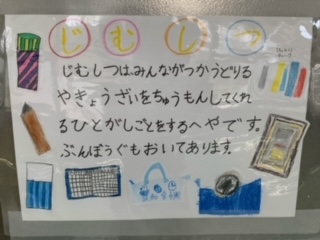 じむしつ
じむしつは、みんながつかうどりる
やきょうざいをちゅうもんしてくれ
るひとがしごとをするへやです。
ぶんぼうぐもおいてあります。